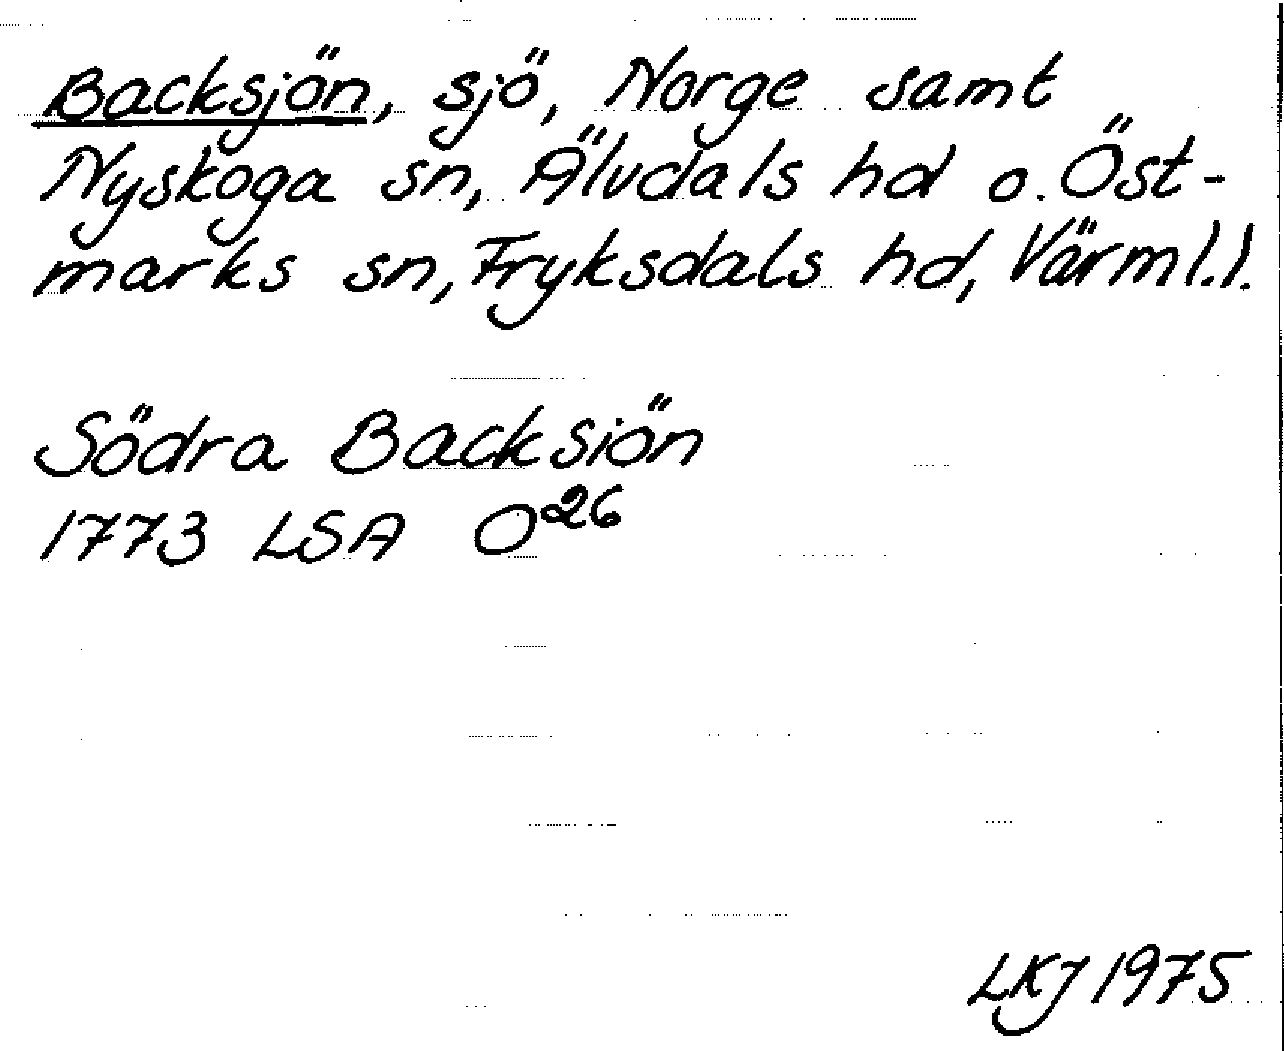 Backsjön, sjö, Norge samt
Nyskoga sn, Älvdals hd o. Öst-
marks sn, Fryksdals hd, Värml.l.
Södra Backsiön
1773 LSA O²⁶
LKJ 1975